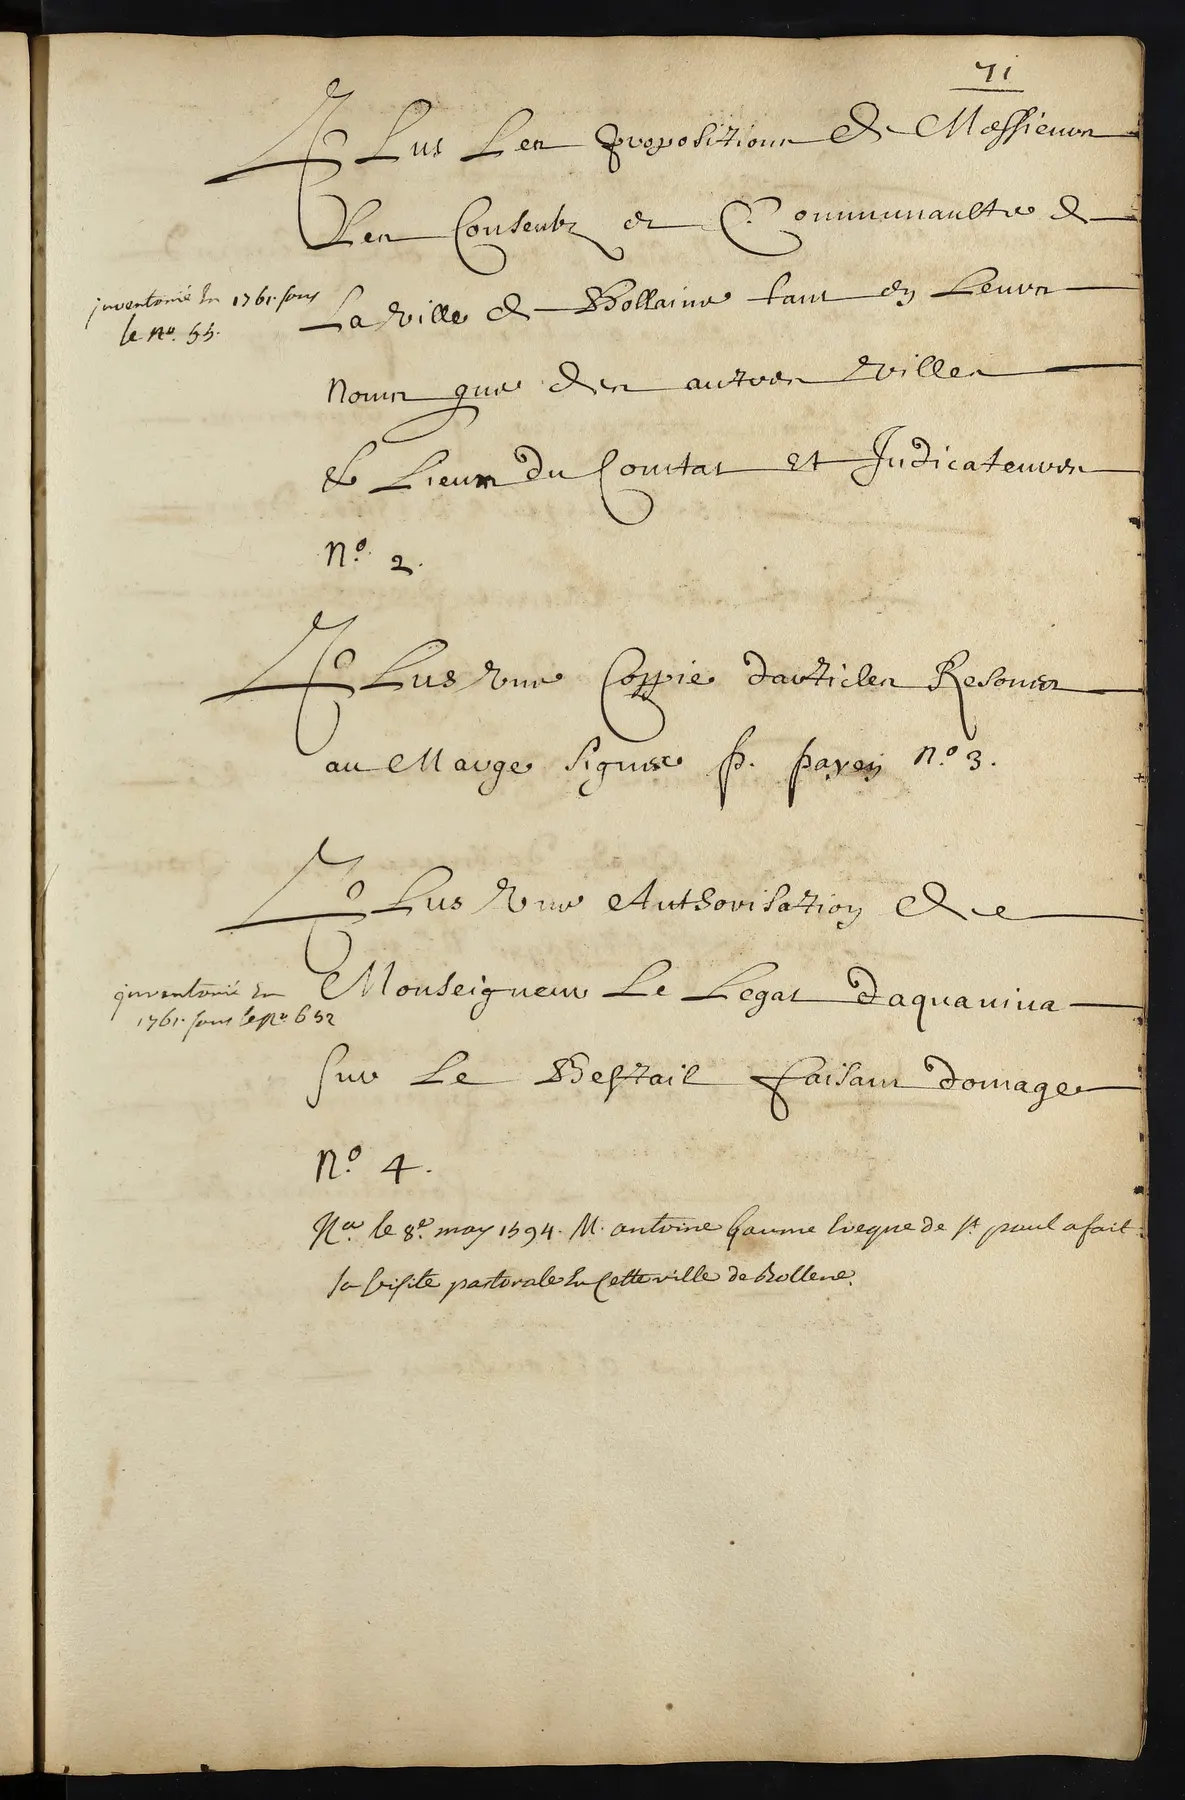 71
Plus Les propositions de Messieurs
Les Conseulz et Communaulte de
La ville de Bollaine tant en Leurs
Noms que des autres villes
& Lieux du Comtat et Judicateures
N.º 2.
Plus vne Coppie darticles Resoneés
au Marge signee p. payen N.º 3.
Plus vne Authorisation de
Monseigneur Le Legat daquaviva
sur Le Bestail faisant domage
N.º 4.
inventorié en 1761. sous
le Nº. 55.
inventorié en
1761. sous le Nº 652
Nª le 8.e may 1594. M. antoine Gaume eveque de St paul a fait
sa visite pastorale en Cette ville de Bollene.